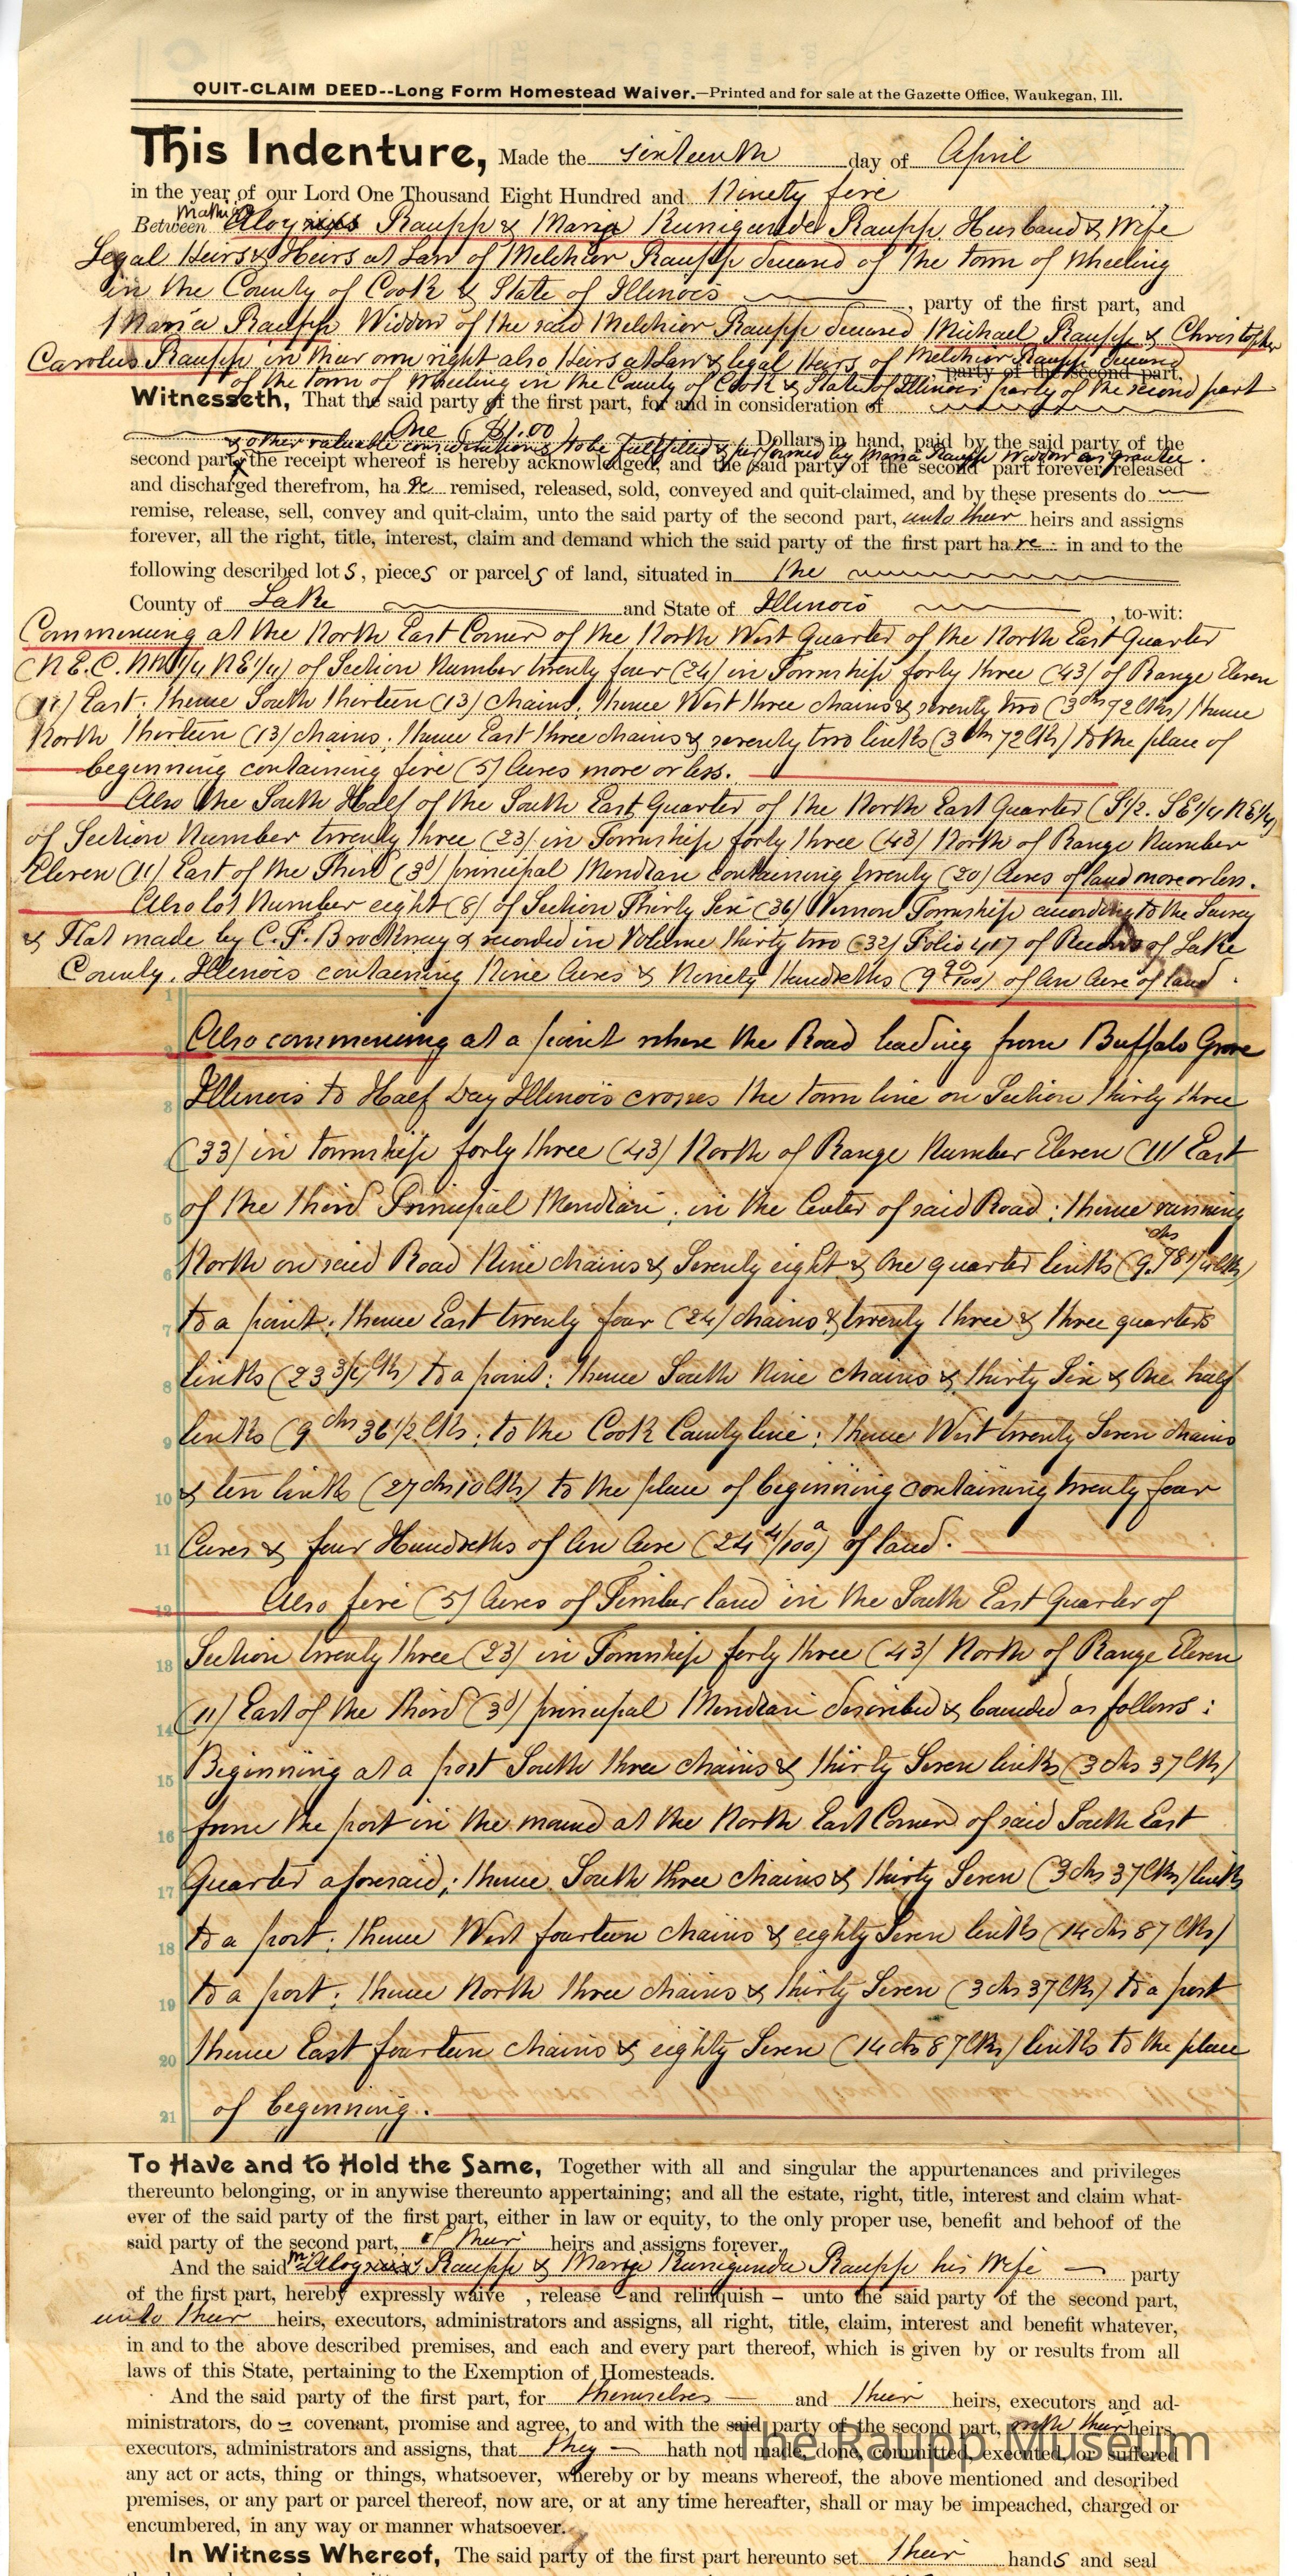 QUIT-CLAIM DEED--Long Form Homestead Waiver.—Printed and for sale at the Gazette Office, Waukegan, Ill.
This Indenture, Made the sixteenth day of April
in the year of our Lord One Thousand Eight Hundred and Ninety five
Between Raupp & Maria Kunigunde Raupp Husband & Wife
Legal Heirs & Heirs at Law of Melchior Raupp deceased of the town of Wheeling
in the County of Cook & State of Illinois, party of the first part, and
Maria Raupp Widdow of the said Melchior Raupp deceased Michael Raupp & Christopher
Carolus Raupp in their own right also Heirs at Law & legal Heirs of Melchior Raupp deceased
party of the second part,
of the town of Wheeling in the County of Cook & State of Illinois party of the second part
Witnesseth, That the said party of the first part, for and in consideration of
One ($1.00) Dollars in hand, paid by the said party of the
& other valuable considerations to be fullfilled & performed by Maria Raupp Widdow as grantee.
second party the receipt whereof is hereby acknowledged, and the said party of the second part forever released
and discharged therefrom, have remised, released, sold, conveyed and quit-claimed, and by these presents do
remise, release, sell, convey and quit-claim, unto the said party of the second part, unto their heirs and assigns
forever, all the right, title, interest, claim and demand which the said party of the first part have in and to the
following described lots, pieces or parcels of land, situated in the
County of Lake and State of Illinois, to-wit:
Commencing at the North East Corner of the North West Quarter of the North East Quarter
(N.E.C. NW1/4 NE1/4) of Section Number twenty four (24) in Township forty three (43) of Range Eleven
(11) East; thence South thirteen (13) chains; thence West three chains & seventy two (3 chs 72 lks) thence
North thirteen (13) chains; thence East three chains & seventy two links (3 chs 72 lks) to the place of
beginning containing five (5) Acres more or less.
Also the South Half of the South East Quarter of the North East Quarter (S1/2. SE1/4 NE1/4)
of Section Number twenty three (23) in Township forty three (43) North of Range Number
Eleven (11) East of the Third (3d) principal Meridian containing twenty (20) Acres of land more or less.
Also lot Number eight (8) of Section Thirty Six (36) Vernon Township according to the Survey
& Plat made by C. F. Brockway & recorded in Volume thirty two (32) Folio 417 of Records of Lake
County, Illinois containing Nine Acres & Ninety Hundredths (9 90/100) of an Acre of land.
Also commencing at a point where the Road leading from Buffalo Grove
Illinois to Half Day Illinois crosses the town line on Section thirty three
(33) in township forty three (43) North of Range Number Eleven (11) East
of the third Principal Meridian; in the Center of said Road; thence running
North on said Road Nine chains & Seventy eight & One quarter links (9 chs 78 1/4 lks)
to a point; thence East twenty four (24) chains & twenty three & three quarters
links (23 3/4 lks) to a point; thence South Nine chains & thirty Six & One half
links (9 chs 36 1/2 lks; to the Cook County line; thence West twenty Seven chains
& ten links (27 chs 10 lks) to the place of beginning containing twenty four
Acres & four Hundredths of an Acre (24 4/100 a) of land.
Also five (5) Acres of Timber land in the South East Quarter of
Section twenty three (23) in Township forty three (43) North of Range Eleven
(11) East of the third (3d) principal Meridian described & bounded as follows:
Beginning at a post South three chains & thirty Seven links (3 chs 37 lks)
from the post in the mound at the North East Corner of said South East
Quarter aforesaid; thence South three chains & thirty Seven (3 chs 37 lks) links
to a post; thence West fourteen chains & eighty Seven links (14 chs 87 lks)
to a post; thence North three chains & thirty Seven (3 chs 37 lks) to a post
thence East fourteen chains & eighty Seven (14 chs 87 lks) links to the place
of beginning.
To Have and to Hold the Same, Together with all and singular the appurtenances and privileges
thereunto belonging, or in anywise thereunto appertaining; and all the estate, right, title, interest and claim what-
ever of the said party of the first part, either in law or equity, to the only proper use, benefit and behoof of the
said party of the second part, of their heirs and assigns forever.
And the said Raupp & Maria Kunigunda Raupp his Wife party
of the first part, hereby expressly waive, release and relinquish unto the said party of the second part,
unto their heirs, executors, administrators and assigns, all right, title, claim, interest and benefit whatever,
in and to the above described premises, and each and every part thereof, which is given by or results from all
laws of this State, pertaining to the Exemption of Homesteads.
And the said party of the first part, for themselves and their heirs, executors and ad-
ministrators, do covenant, promise and agree, to and with the said party of the second part, with their heirs,
executors, administrators and assigns, that they hath not made, done, committed, executed, or suffered
any act or acts, thing or things, whatsoever, whereby or by means whereof, the above mentioned and described
premises, or any part or parcel thereof, now are, or at any time hereafter, shall or may be impeached, charged or
encumbered, in any way or manner whatsoever.
In Witness Whereof, The said party of the first part hereunto set their hands and seal
The Raupp Museum